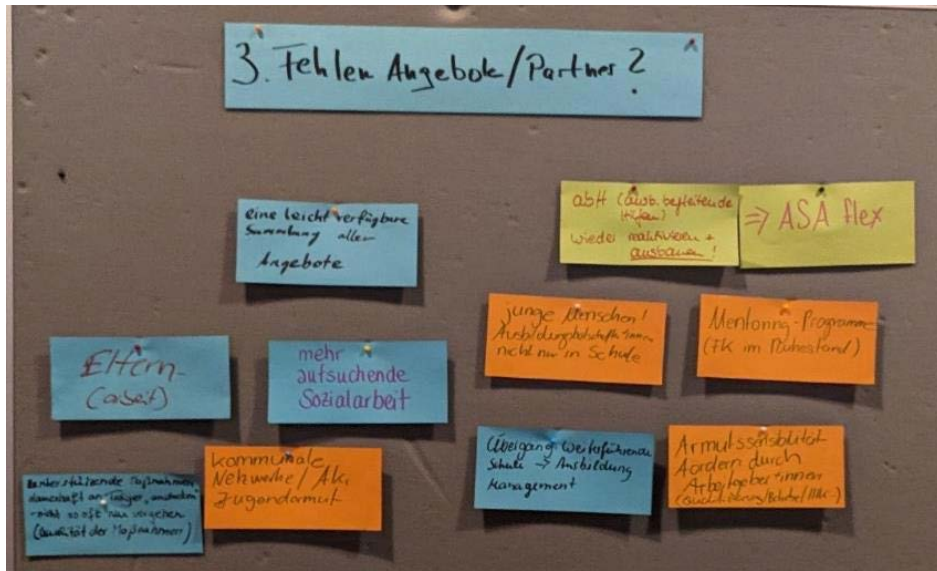 3. Fehlen Angebote/Partner?
eine leicht verfügbare
Sammlung aller
Angebote
abH (ausb. begleitende
Hilfen)
wieder +
ausbauen!
=> ASA flex
junge Menschen!
Ausbildungsbotschafter*innen
nicht nur in Schule
Mentoring-Programme
(FK im Ruhestand)
Eltern-
(arbeit)
mehr
aufsuchende
Sozialarbeit
Übergang weiterführende
Schule -> Ausbildung
Management
Armutssensibilität
fördern durch
Arbeitgeber*innen
kommunale
Netzwerke/AK,
Jugendarmut
Maßnahmen
dauerhaft an Träger,
-nicht so oft neu vergeben
(Qualität der Maßnahmen)